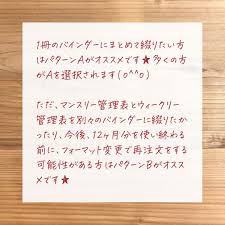 1冊のバインダーにまとめて綴りたい方
はパターンAがオススメです★多くの方
がAを選択されます(o^^o)
ただ、マンスリー管理表とウィークリー
管理表を別々のバインダーに綴りたか
ったり、今後、12ヶ月分を使い終わる
前に、フォーマット変更で再注文をする
可能性がある方はパターンBがオスス
メです★